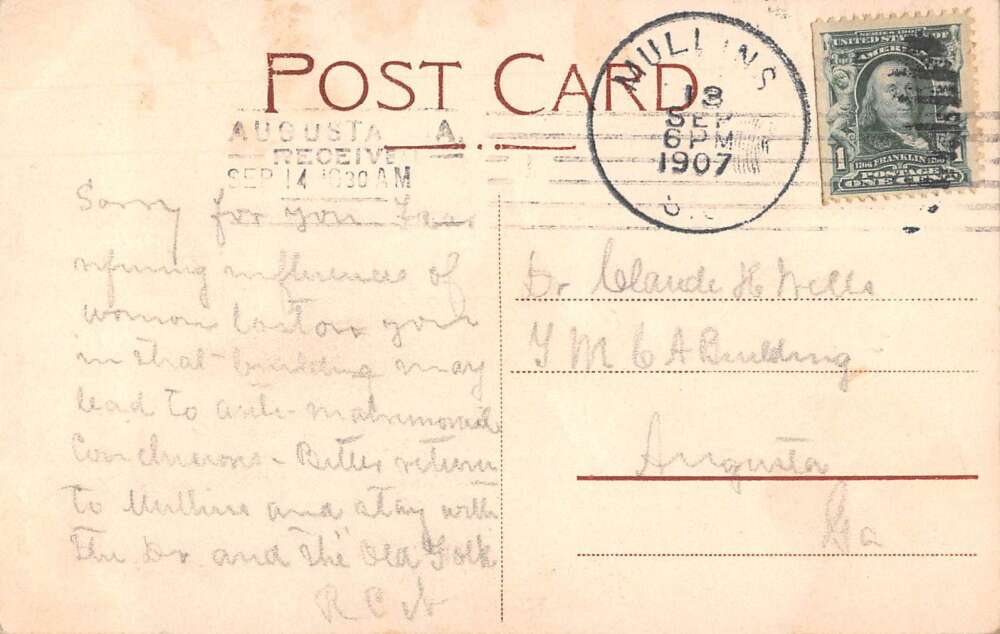 POST CARD
MULLINS
13
SEP
6 PM
1907
SERIES 1902
UNITED STATES OF
AMERICA
1 FRANKLIN 1
POSTAGE
ONE CENT
AUGUSTA A.
RECEIVE
SEP 14 1030 AM
Sorry for you
refining influences of
woman lost on you
in that building may
lead to anti-matrimonial
Conclusions - Better return
to Mullins and stay with
the Dr and the "Old Folk
R C
Dr Claude H Wells
Y M C A Building
Augusta
Ga